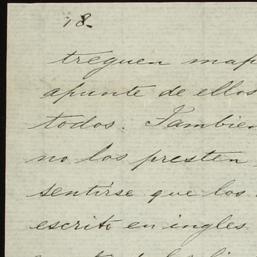 18-
treguen map
apunte de ellos
todos. Tambien
no los presten
sentirse que los
escrito en ingles.